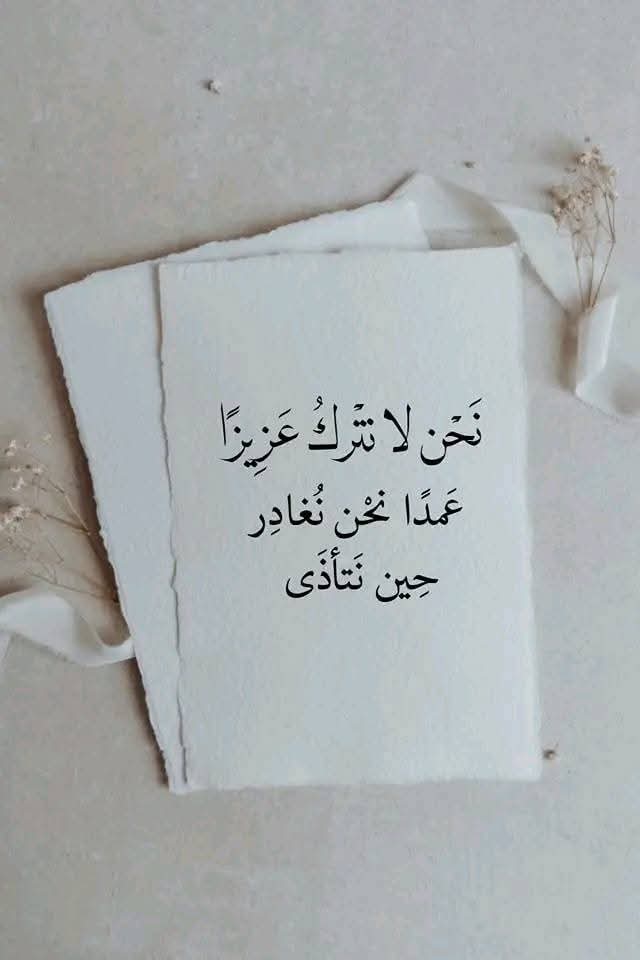 نَحْن لا نتْركُ عَزِيزًا
عَمدًا نحْن نُغادِر
حِين نَتأذَى